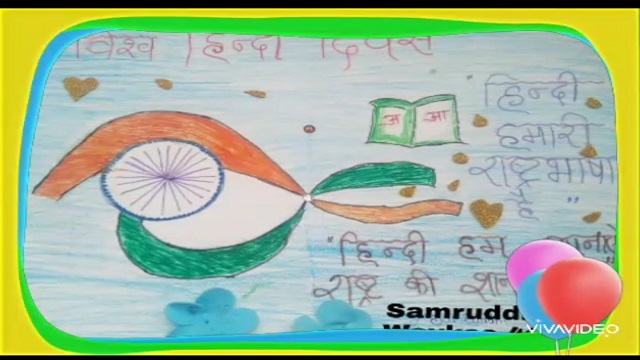 विश्व हिन्दी दिवस
अ आ
हिन्दी
हमारी
राष्ट्रभाषा
है "
"हिन्दी हम
राष्ट्र की
Samruddh
VIVAVIDEO